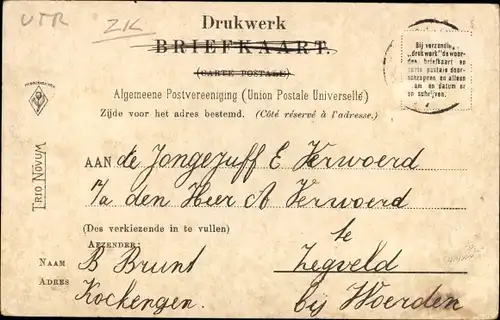 UTR
ZK
Drukwerk
BRIEFKAART.
(CARTE POSTALE)
Bij verzending als
„drukwerk" de woor-
den briefkaart en
carte postale door-
schrapen en alleen
naam en datum er
op schrijven.
Algemeene Postvereeniging (Union Postale Universelle)
Zijde voor het adres bestemd. (Côté réservé à l'adresse.)
TRIO NOVUM
AAN de Jongejuff E Verwoerd
p/a den Heer A Verwoerd
(Des verkiezende in te vullen)
te
AFZENDER:
NAAM B Brunt Zegveld
ADRES Kockengen. bij Woerden